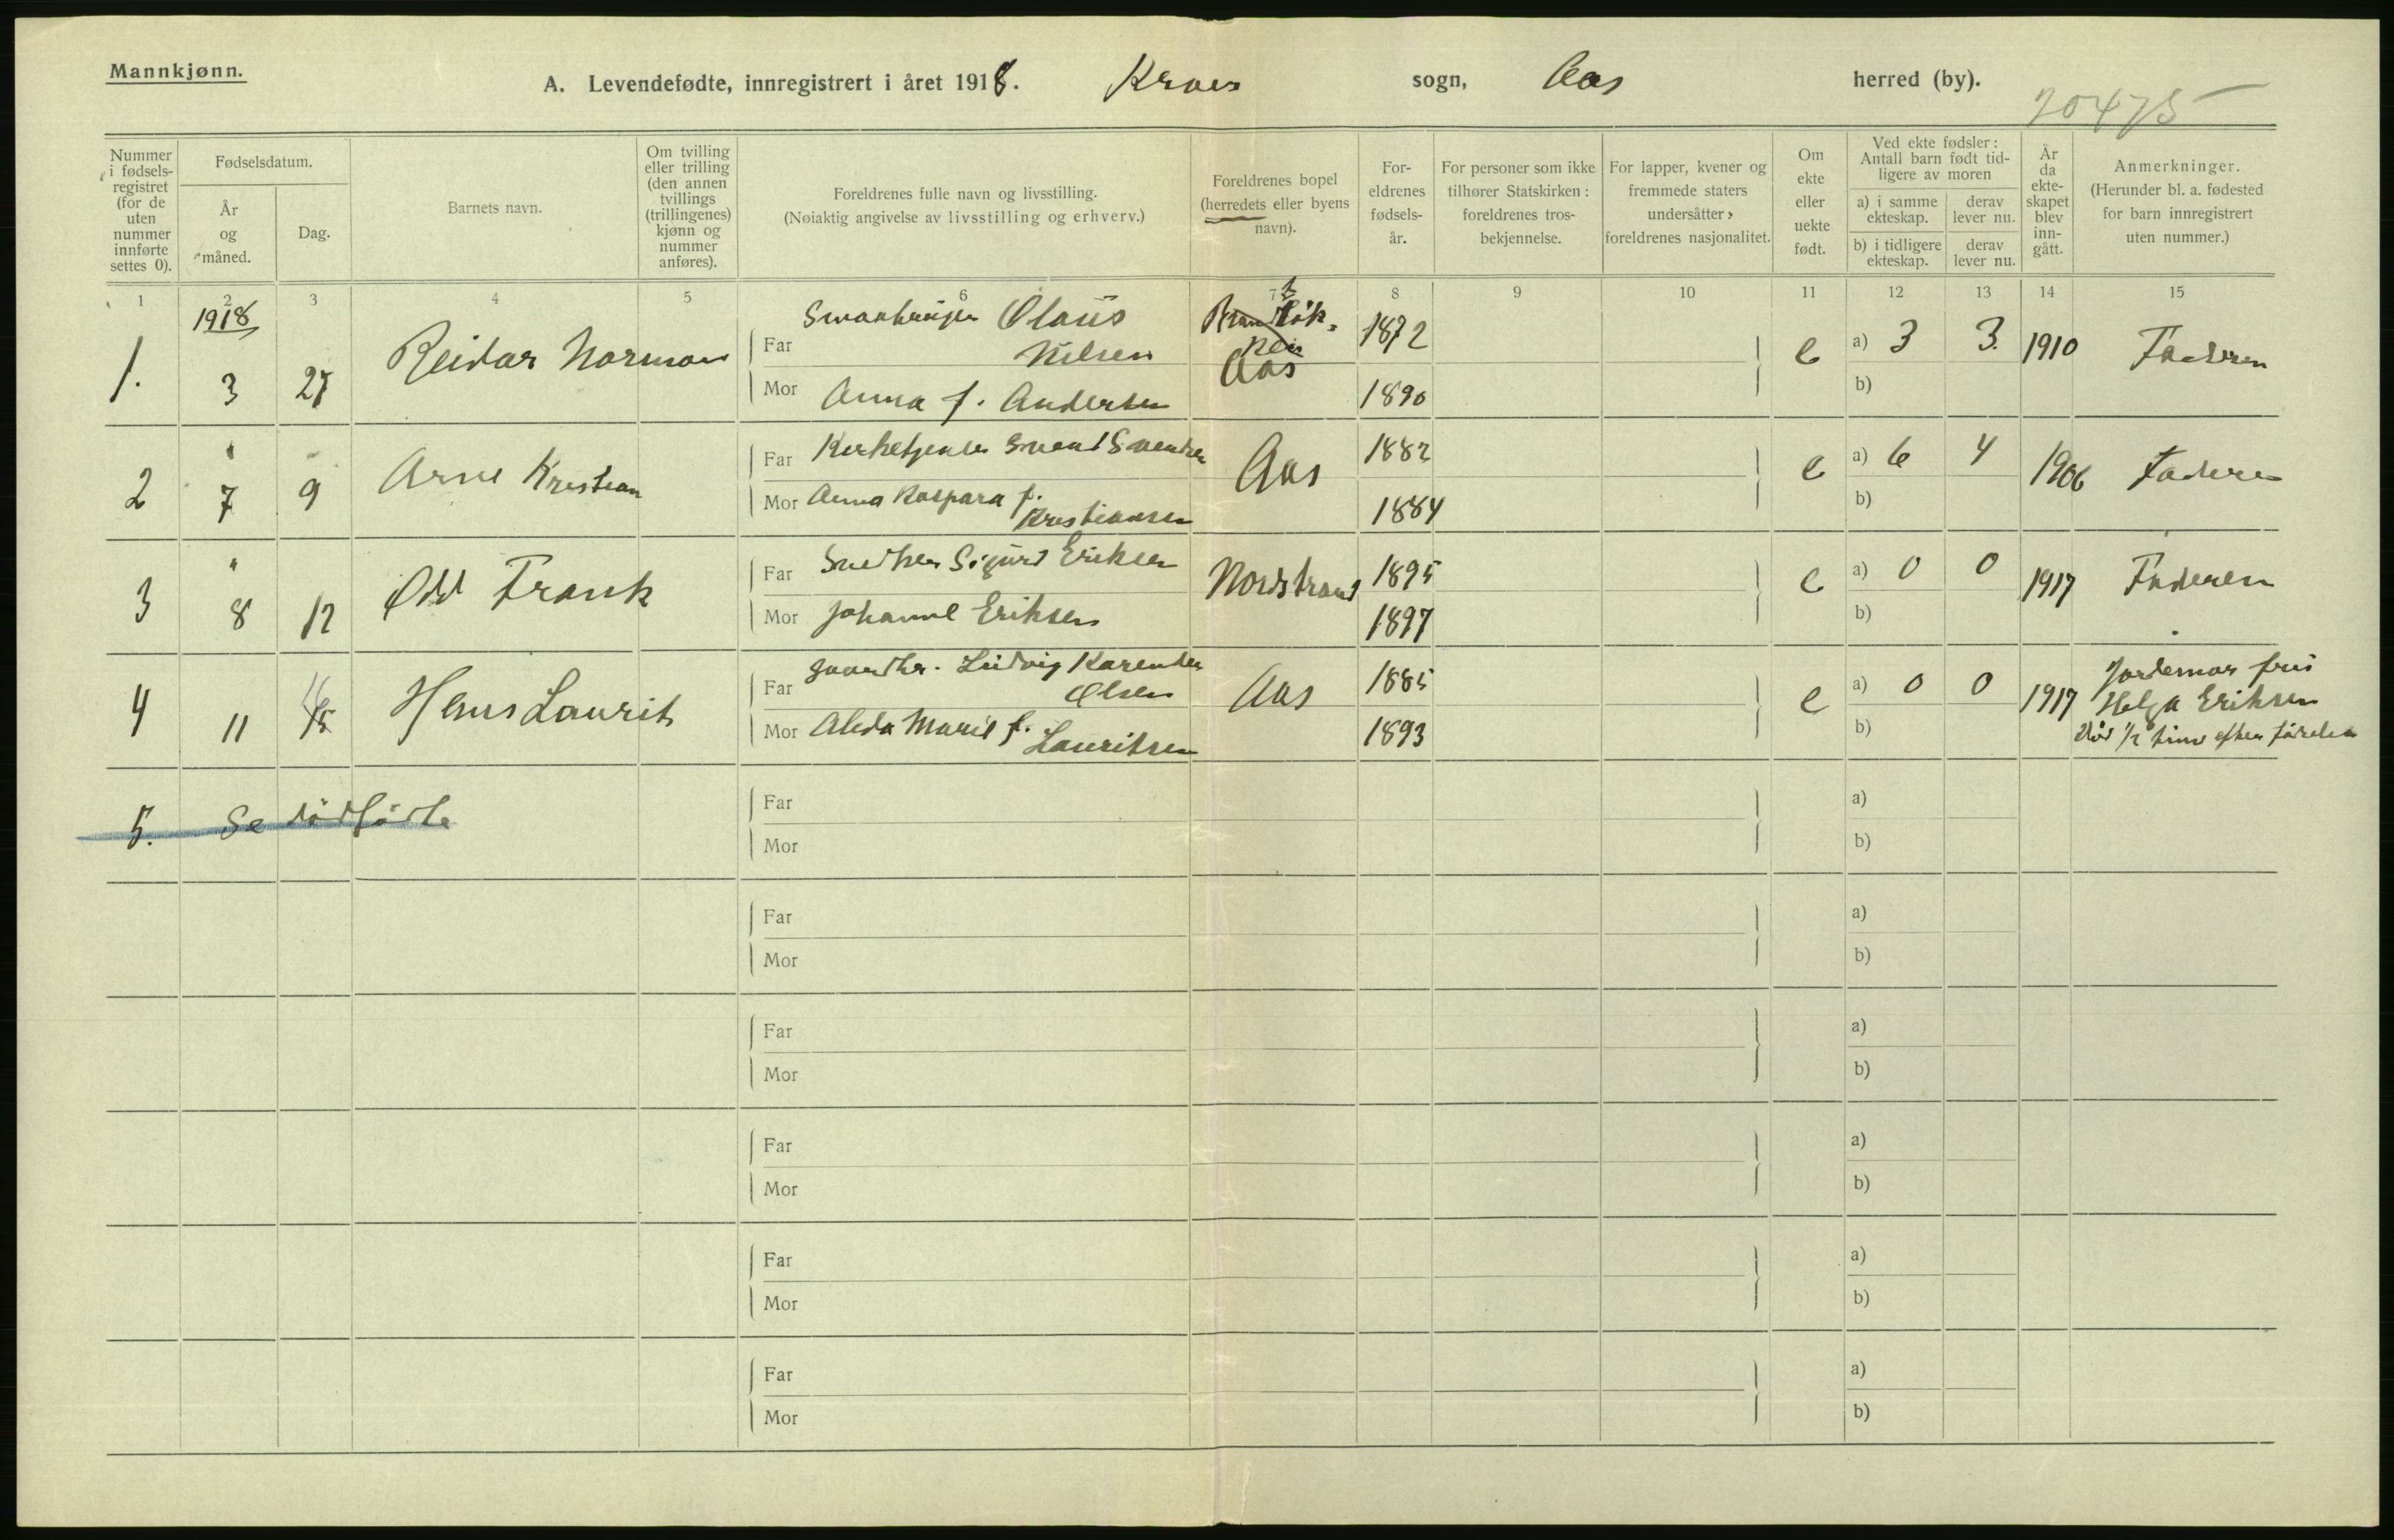 Mannkjønn.
A. Levendefødte, innregistrert i året 1918. Kroer sogn, Aas herred (by).
20475
Nummer i fødselsregistret (for de uten nummer innførte settes 0).
Fødselsdatum.
År og måned.
Dag.
Barnets navn.
Om tvilling eller trilling (den annen tvillings (trillingenes) kjønn og nummer anføres).
Foreldrenes fulle navn og livsstilling.
(Nøiaktig angivelse av livsstilling og erhverv.)
Foreldrenes bopel (herredets eller byens navn).
Foreldrenes fødselsår.
For personer som ikke tilhører Statskirken: foreldrenes trosbekjennelse.
For lapper, kvener og fremmede staters undersåtter, foreldrenes nasjonalitet.
Om ekte eller uekte født.
Ved ekte fødsler: Antall barn født tidligere av moren
a) i samme ekteskap.
derav lever nu.
b) i tidligere ekteskap.
derav lever nu.
År da ekteskapet blev inngått.
Anmerkninger.
(Herunder bl. a. fødested for barn innregistrert uten nummer.)
1 2 3 4 5 6 7 8 9 10 11 12 13 14 15
1918
1. 3 27 Reidar Norman
Far Smaabruger Olaus Nilsen Aas 1872 e a) 3 3. 1910 Faderen
Mor Anna f. Andersen 1890 b)
2 " 7 9 Arne Kristian
Far Kirketjener Svend Svendsen Aas 1882 e a) 6 4 1906 Faderen
Mor Anna Kaspara f. Kristiansen 1884 b)
3 " 8 12 Odd Frank
Far Snedker Sigurd Eriksen Nordstrand 1895 e a) 0 0 1917 Faderen
Mor Johanne Eriksen 1897 b)
4 11 Hans Laurits
Far gaardbr. Ludvig Karensen Olsen Aas 1885 e a) 0 0 1917 Jordemor fru Helga Eriksen
Mor Alida Marie f. Lauritsen 1893 b) død 1/2 time efter fødselen
5. Se dødfødte
Far a)
Mor b)
Far a)
Mor b)
Far a)
Mor b)
Far a)
Mor b)
Far a)
Mor b)
Far a)
Mor b)